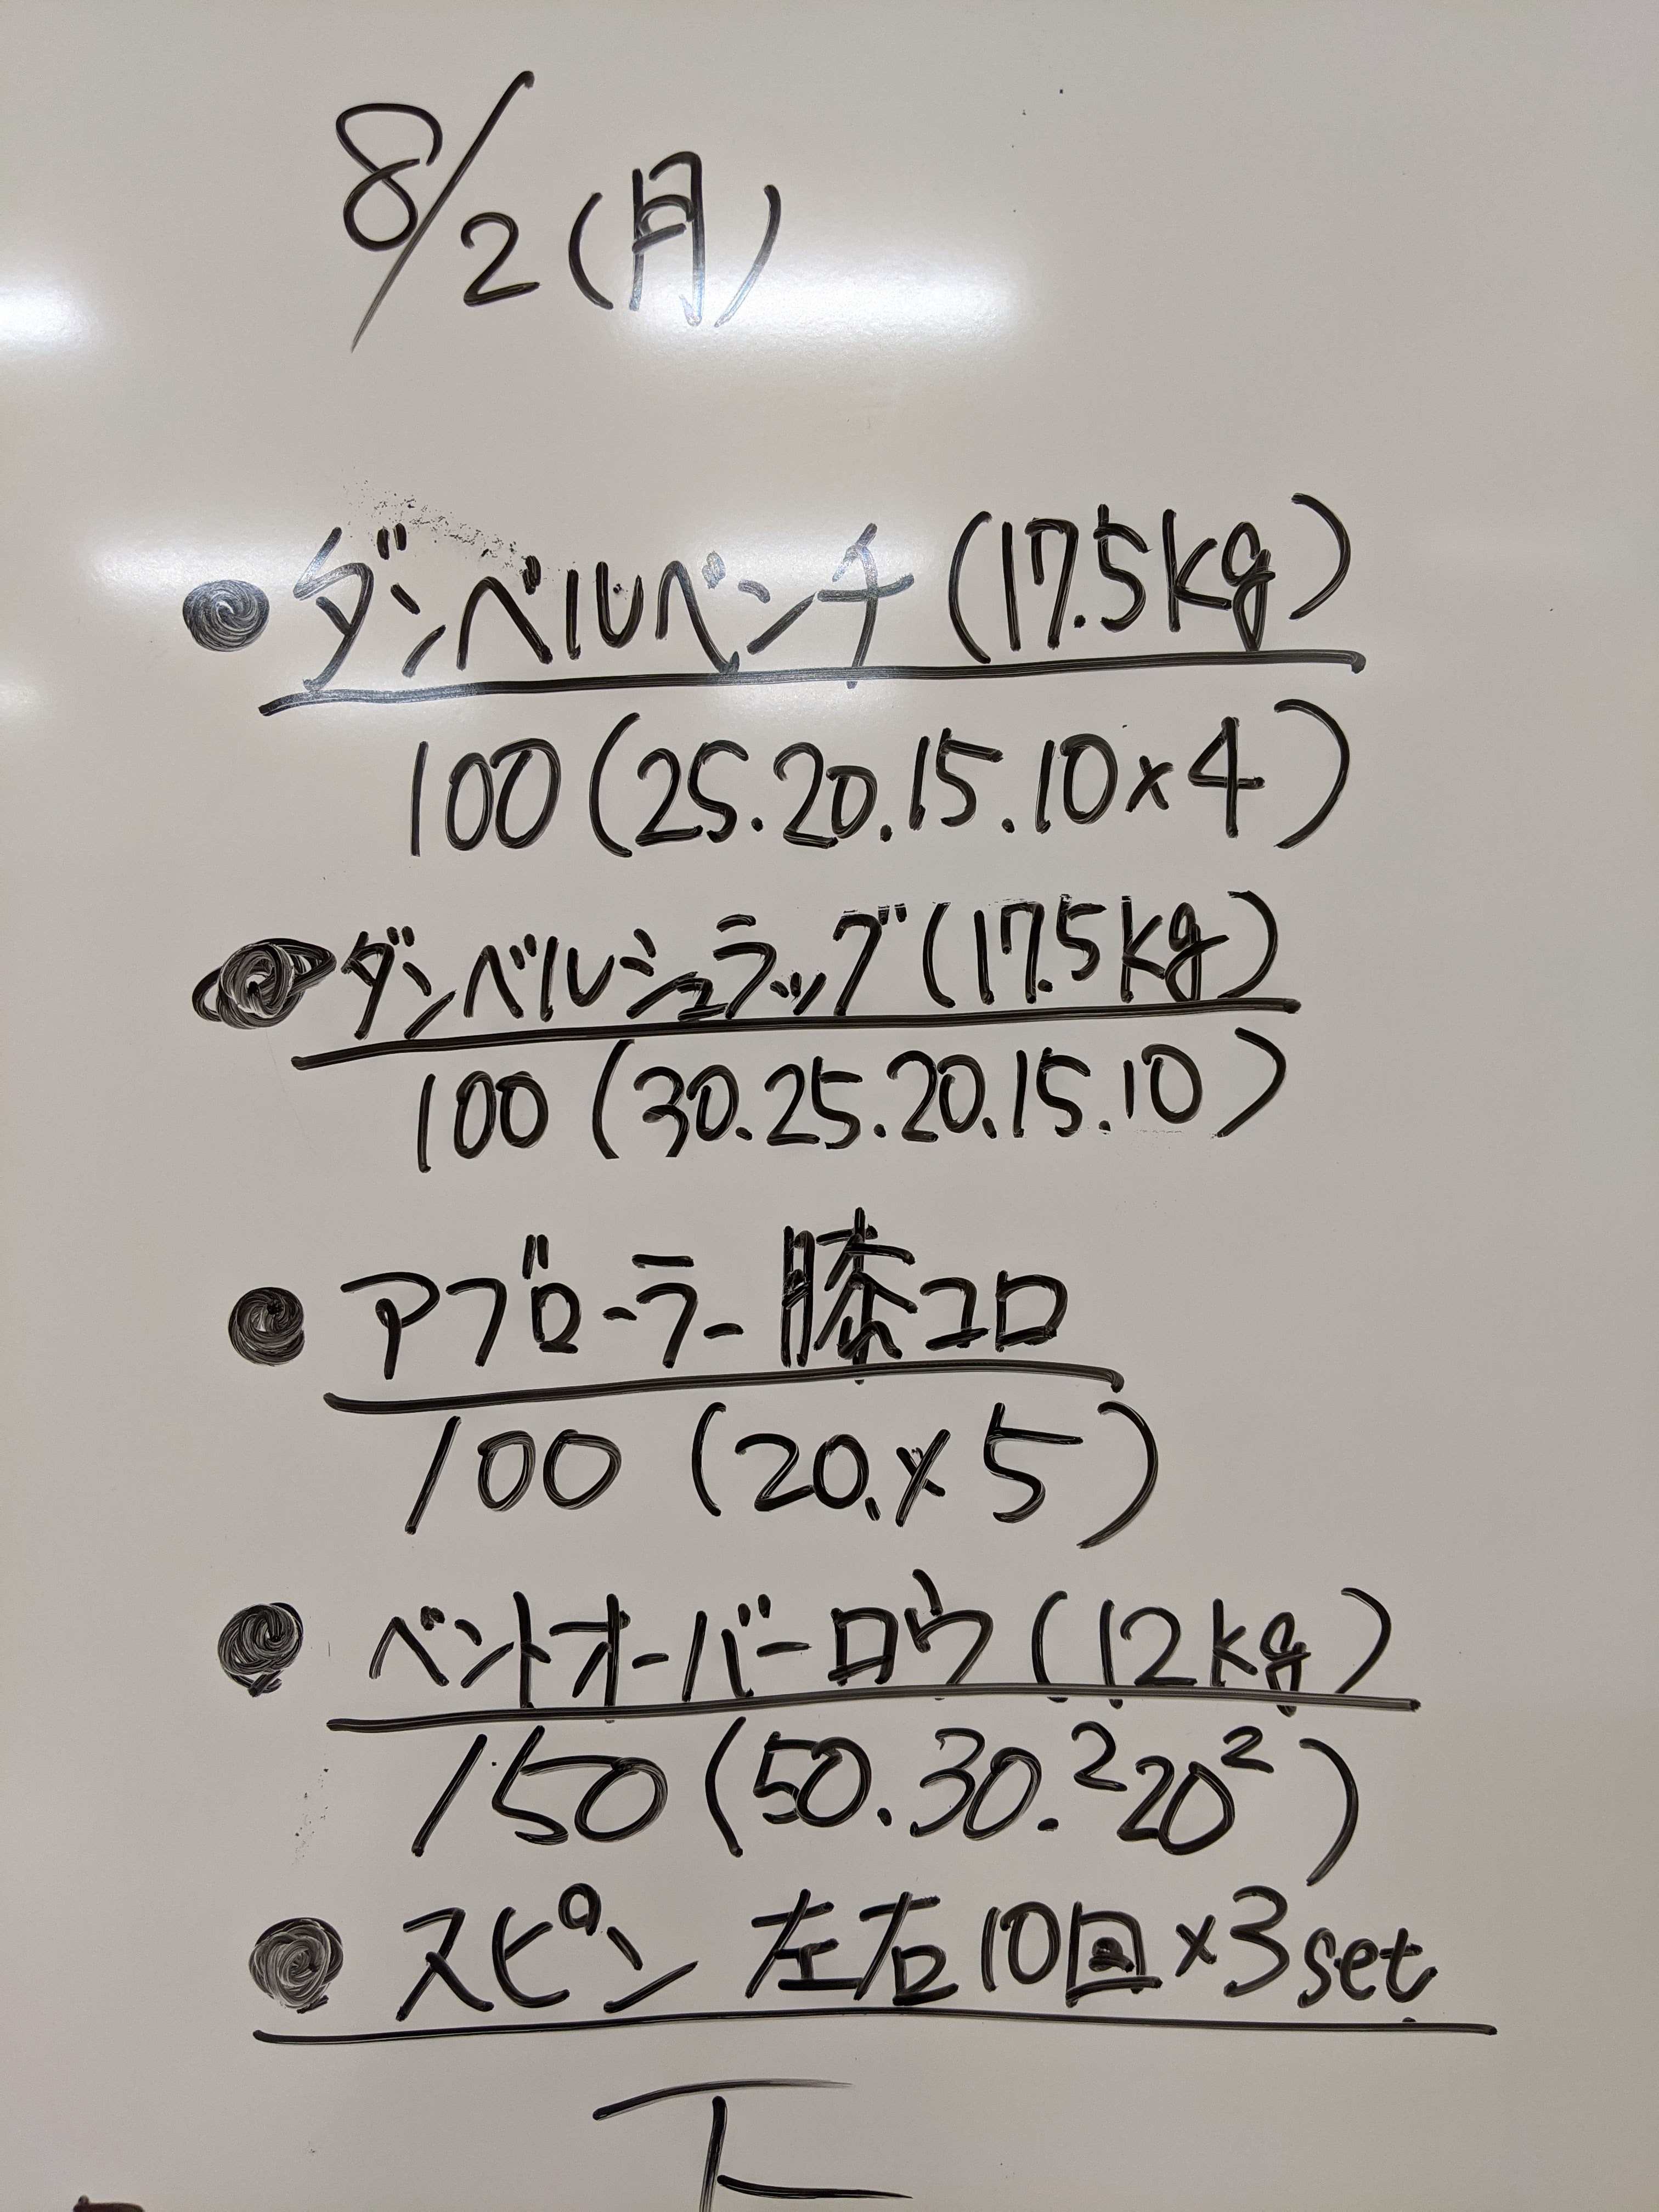 8/2(月)
● ダンベルベンチ (17.5kg)
100 (25.20.15.10×4)
● ダンベルシュラッグ (17.5kg)
100 (30.25.20.15.10)
● アブローラー 膝コロ
100 (20.×5)
● ベントオーバーロウ (12kg)
150 (50.30.²20²)
● スピン 左右10回×3set